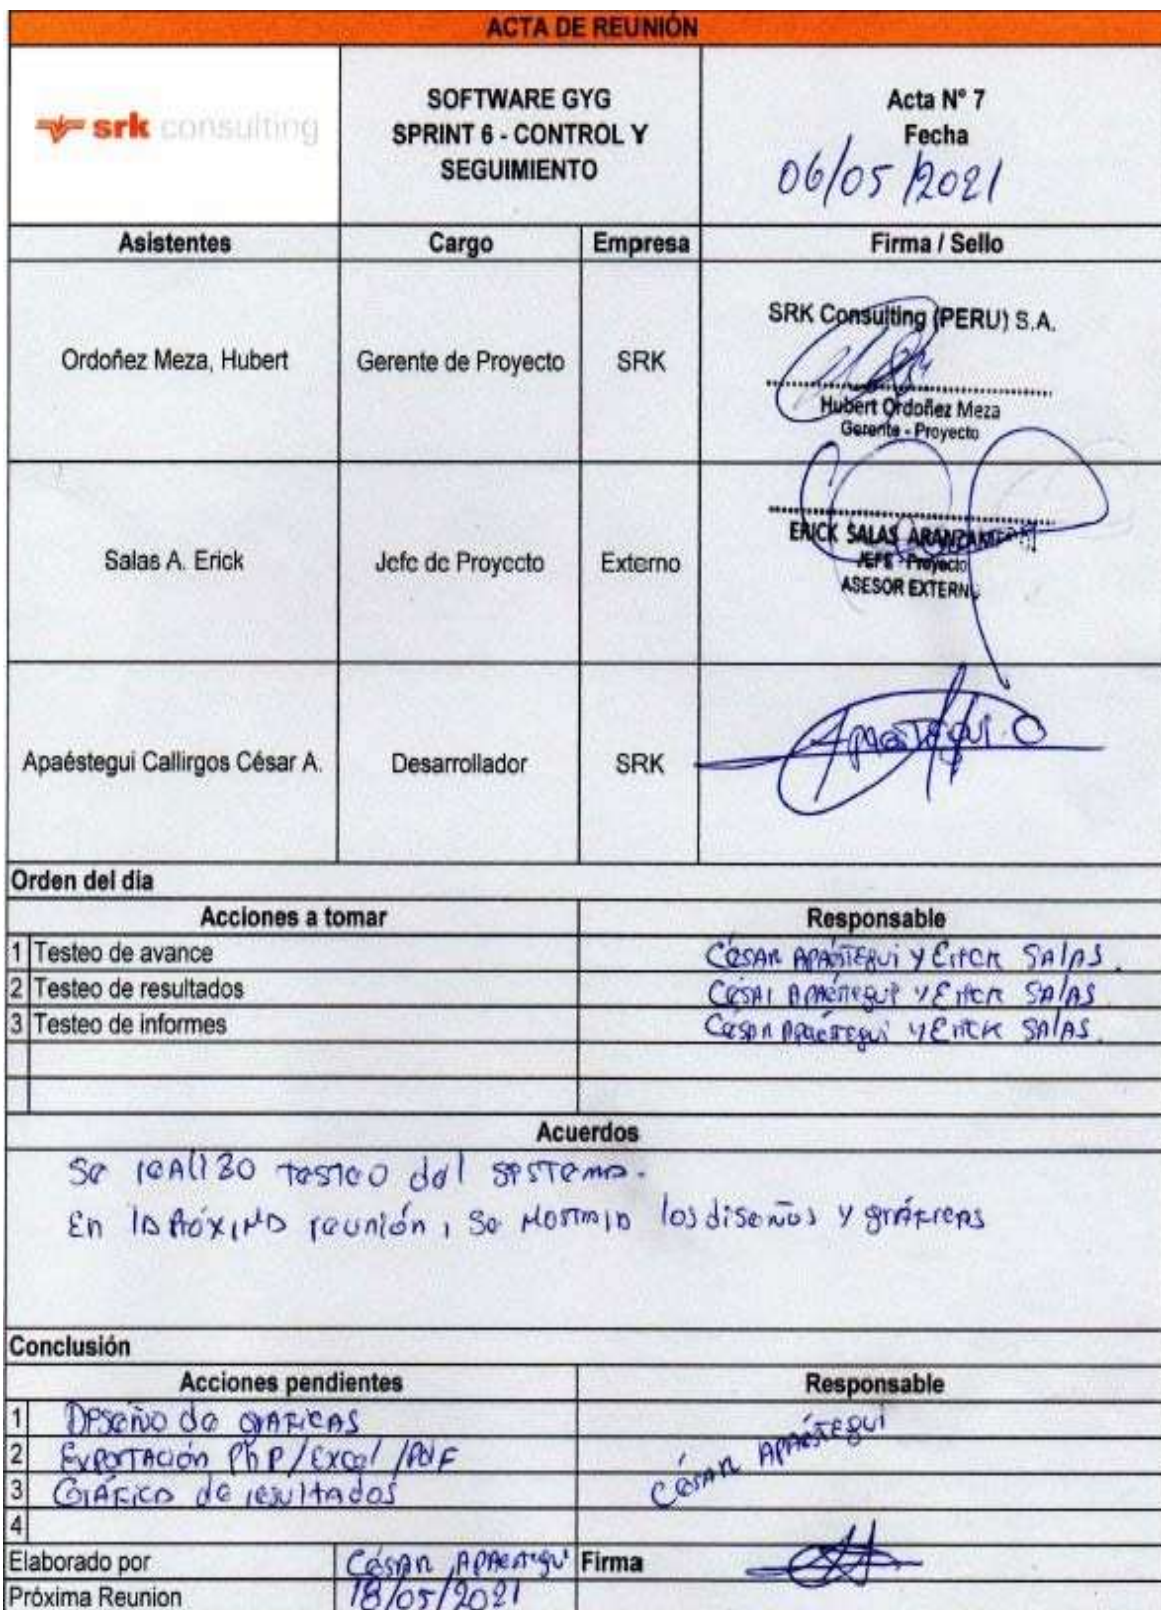 ACTA DE REUNIÓN
srk consulting
SOFTWARE GYG
SPRINT 6 - CONTROL Y
SEGUIMIENTO
Acta Nº 7
Fecha
06/05/2021
Asistentes Cargo Empresa Firma / Sello
Ordoñez Meza, Hubert Gerente de Proyecto SRK
SRK Consulting (PERU) S.A.
Hubert Ordoñez Meza
Gerente - Proyecto
Salas A. Erick Jefe de Proyecto Externo
ERICK SALAS
JEFE - Proyecto
ASESOR EXTERNO
Apaéstegui Callirgos César A. Desarrollador SRK
Apaéstegui C
Orden del dia
Acciones a tomar Responsable
1 Testeo de avance César Apaéstegui y Erick Salas.
2 Testeo de resultados César Apaéstegui y Erick Salas
3 Testeo de informes César Apaéstegui y Erick Salas.
Acuerdos
Se realizo testeo del sistema.
En la próxima reunión, se mostrara los diseños y gráficas
Conclusión
Acciones pendientes Responsable
1 Diseño de graficas
2 Exportación PhP/Excel/Pdf
César Apaéstegui
3 Gráfica de resultados
4
Elaborado por César Apaéstegui Firma
Próxima Reunion 18/05/2021